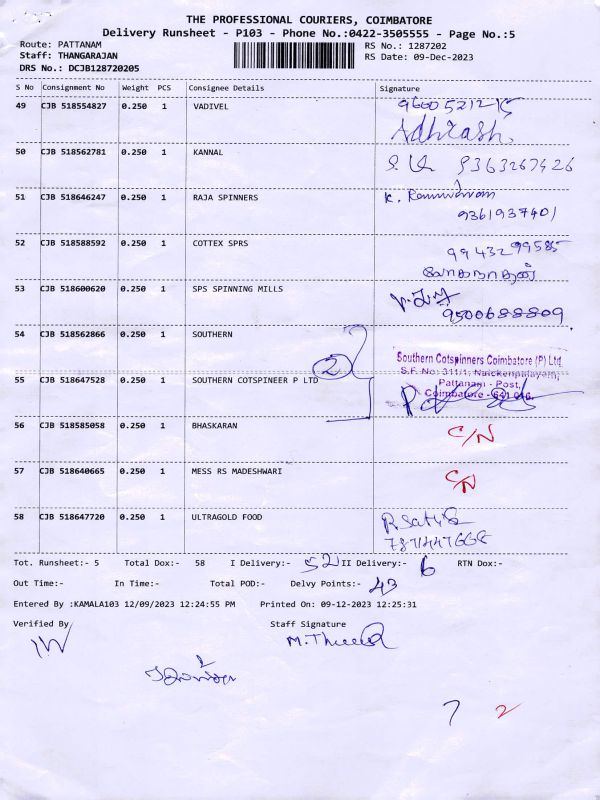 THE PROFESSIONAL COURIERS, COIMBATORE
Delivery Runsheet - P103 - Phone No.:0422-3505555 - Page No.:5
Route: PATTANAM
RS No.: 1287202
Staff: THANGARAJAN
RS Date: 09-Dec-2023
DRS No.: DCJB128720205
S No Consignment No Weight PCS Consignee Details Signature
49 CJB 518554827 0.250 1 VADIVEL
Adhirash.
50 CJB 518562781 0.250 1 KANNAL 9363267426
51 CJB 518646247 0.250 1 RAJA SPINNERS
9361937401
52 CJB 518588592 0.250 1 COTTEX SPRS 99432 99585
லோகநாதன்
53 CJB 518600620 0.250 1 SPS SPINNING MILLS
9500688809
54 CJB 518562866 0.250 1 SOUTHERN
2
Southern Cotspinners Coimbatore (P) Ltd
S.F. No: 311/1, Naickenpalayam,
Pattanam - Post,
Coimbatore - 641 016.
55 CJB 518647528 0.250 1 SOUTHERN COTSPINEER P LTD
56 CJB 518585058 0.250 1 BHASKARAN C/N
57 CJB 518640665 0.250 1 MESS RS MADESHWARI C/N
58 CJB 518647720 0.250 1 ULTRAGOLD FOOD
Tot. Runsheet:- 5 Total Dox:- 58 I Delivery:- 52 II Delivery:- 6 RTN Dox:-
Out Time:- In Time:- Total POD:- Delvy Points:- 43
Entered By :KAMALA103 12/09/2023 12:24:55 PM Printed On: 09-12-2023 12:25:31
Verified By Staff Signature
7 2